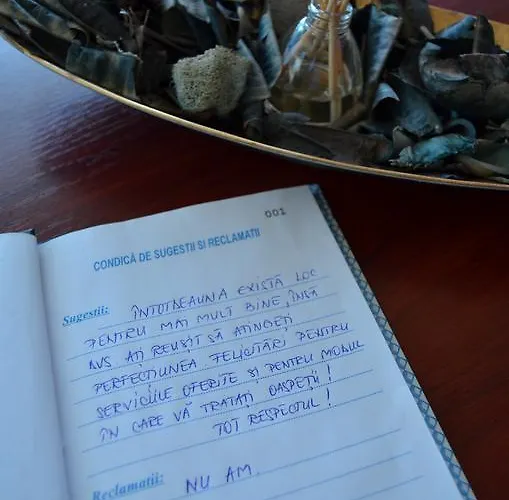 001
CONDICĂ DE SUGESTII SI RECLAMATII
Sugestii: ÎNTOTDEAUNA EXISTĂ LOC
PENTRU MAI MULT BINE, ÎNSĂ
DVS ATI REUȘIT SĂ ATINGEȚI
PERFECȚIUNEA. FELICITĂRI PENTRU
SERVICIILE OFERITE ȘI PENTRU MODUL
ÎN CARE VĂ TRATAȚI OASPEȚII!
TOT RESPECTUL!
Reclamatii: NU AM.